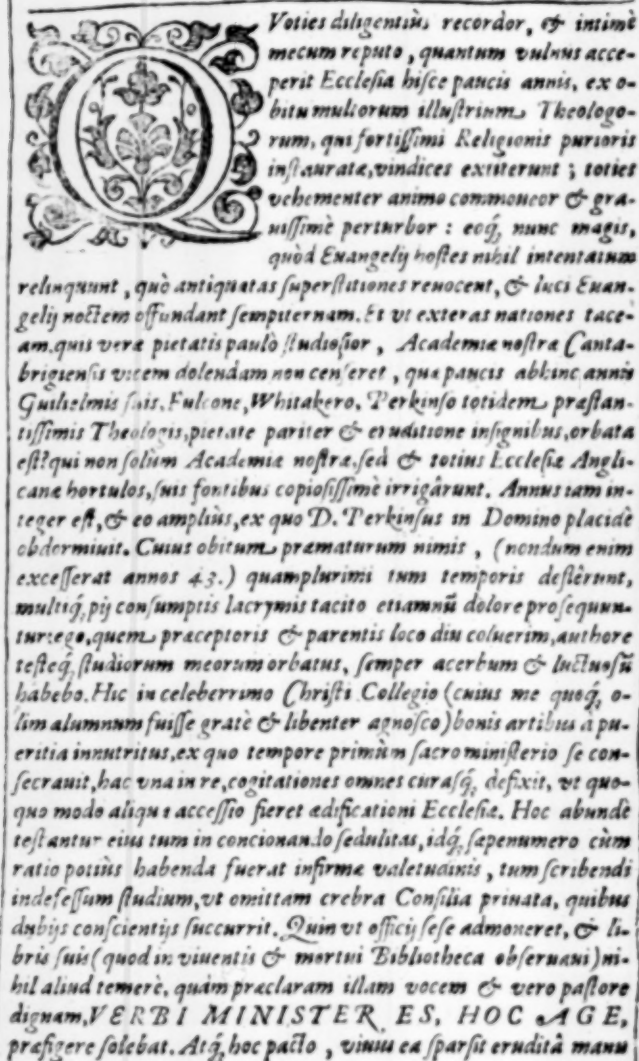 QVoties diligentiùs recordor, & intimè
mecum reputo, quantum vulnus acce-
perit Ecclesia hisce paucis annis, ex o-
bitu multorum illustrium Theologo-
rum, qui fortissimi Religionis purioris
instauratæ, vindices extiterunt ; toties
vehementer animo commoueor & gra-
uissimè perturbor : eoq́, nunc magis,
quòd Euangelij hostes nihil intentatum
relinquunt, quò antiquatas superstitiones reuocent, & luci Euan-
gelij noctem offundant sempiternam. Et vt exteras nationes tace-
am. quis veræ pietatis paulò studiosior, Academiæ nostræ Canta-
brigiensis vicem dolendam non censeret, quæ paucis abhinc annis
Guilielmis suis, Fulcone, Whitakero, Perkinso totidem præstan-
tissimis Theologis, pietate pariter & eruditione insignibus, orbata
est? qui non solùm Academiæ nostræ, sed & totius Ecclesiæ Angli-
canæ hortulos, suis fontibus copiosissimè irrigârunt. Annus iam in-
teger est, & eo ampliùs, ex quo D. Perkinsus in Domino placidè
obdormiuit. Cuius obitum præmaturum nimis, (nondum enim
excesserat annos 43.) quamplurimi tum temporis deflêrunt,
multiq́, pij consumptis lacrymis tacito etiamnū dolore prosequun-
tur: ego, quem præceptoris & parentis loco diu coluerim, authore
testeq́, studiorum meorum orbatus, semper acerbum & luctuosū
habebo. Hic in celeberrimo Christi Collegio (cuius me quoq́, o-
lim alumnum fuisse gratè & libenter agnosco) bonis artibus à pu-
eritia innutritus, ex quo tempore primùm sacro ministerio se con-
secrauit, hac vna in re, cogitationes omnes curasq́, defixit, vt quo-
quo modo aliqua accessio fieret ædificationi Ecclesiæ. Hoc abundè
testantur eius tum in concionando sedulitas, idq́, sæpenumero cùm
ratio potiùs habenda fuerat infirmæ valetudinis, tum scribendi
indefessum studium, vt omittam crebra Consilia priuata, quibus
dubijs conscientijs succurrit. Quin vt officij sese admoneret, & li-
bris suis (quod in viuentis & mortui Bibliotheca obseruaui) ni-
hil aliud temerè, quàm præclaram illam vocem & vero pastore
dignam, VERBI MINISTER ES, HOC AGE,
præfigere solebat. Atq́, hoc pacto, viuus ea sparsit eruditâ manu